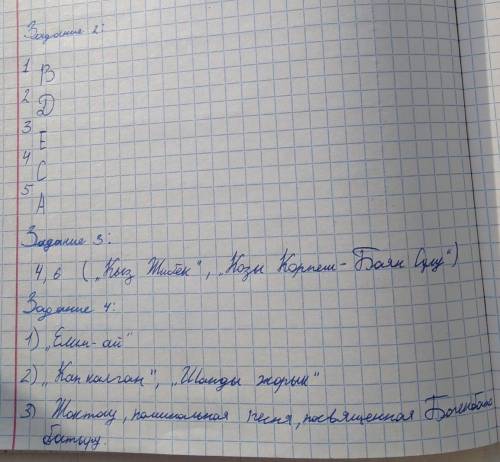 Задание 2:
1 B
2 D
3 E
4 C
5 A
Задание 3:
4, 6 („Кыз Жибек", „Козы Корпеш - Баян Сулу")
Задание 4:
1) „Елим-ай"
2) „Кап калган", „Шанды жорык"
3) Жоктау, поминальная песня, посвященная Богенбай
батыру.